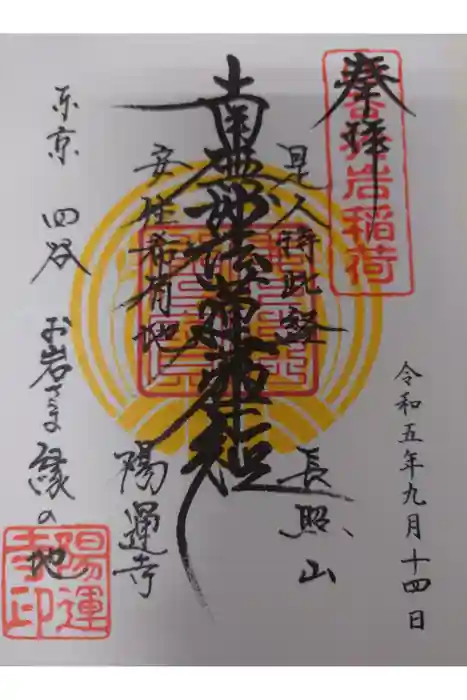 奉拝
四谷於岩稲荷
令和五年九月十四日
是人持此経
長照山
南無妙法蓮華経
安住希有地
陽運寺
東京 四谷 お岩さま縁の地
陽運寺印